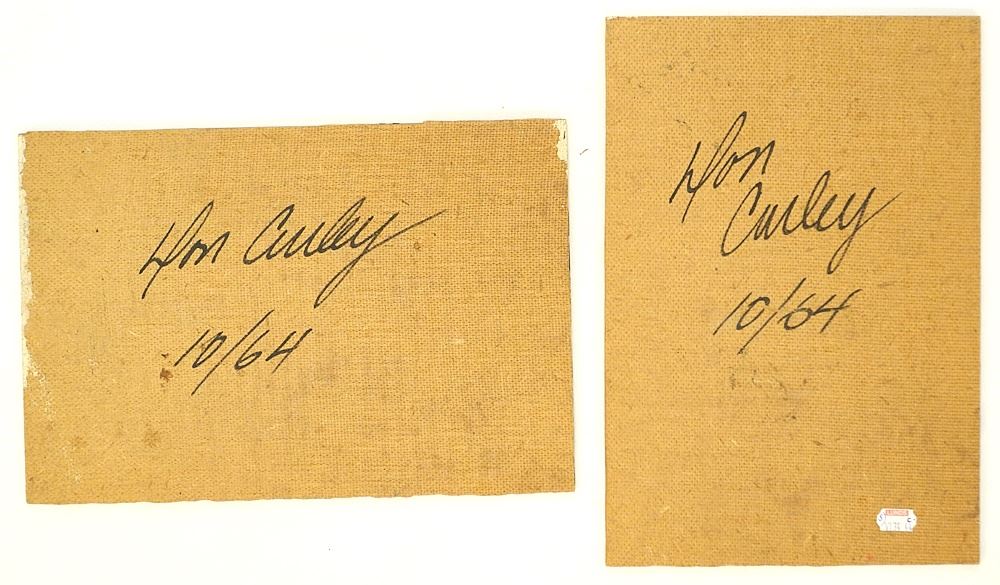 Don Curley
10/64
Don
Curley
10/64
LUNDS